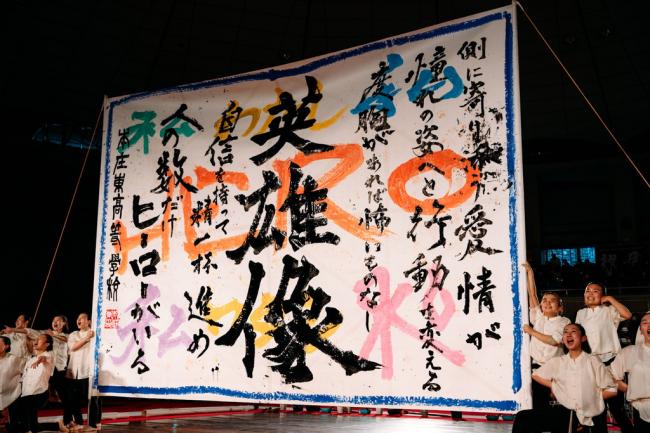 側に寄り添う愛情が
憧れの姿へと行動を変える
度胸があれば怖いものなし
英雄像
自信を持って精一杯進め
人の数だけ
ヒーローがいる
本庄東高等学校
HERO
私
私